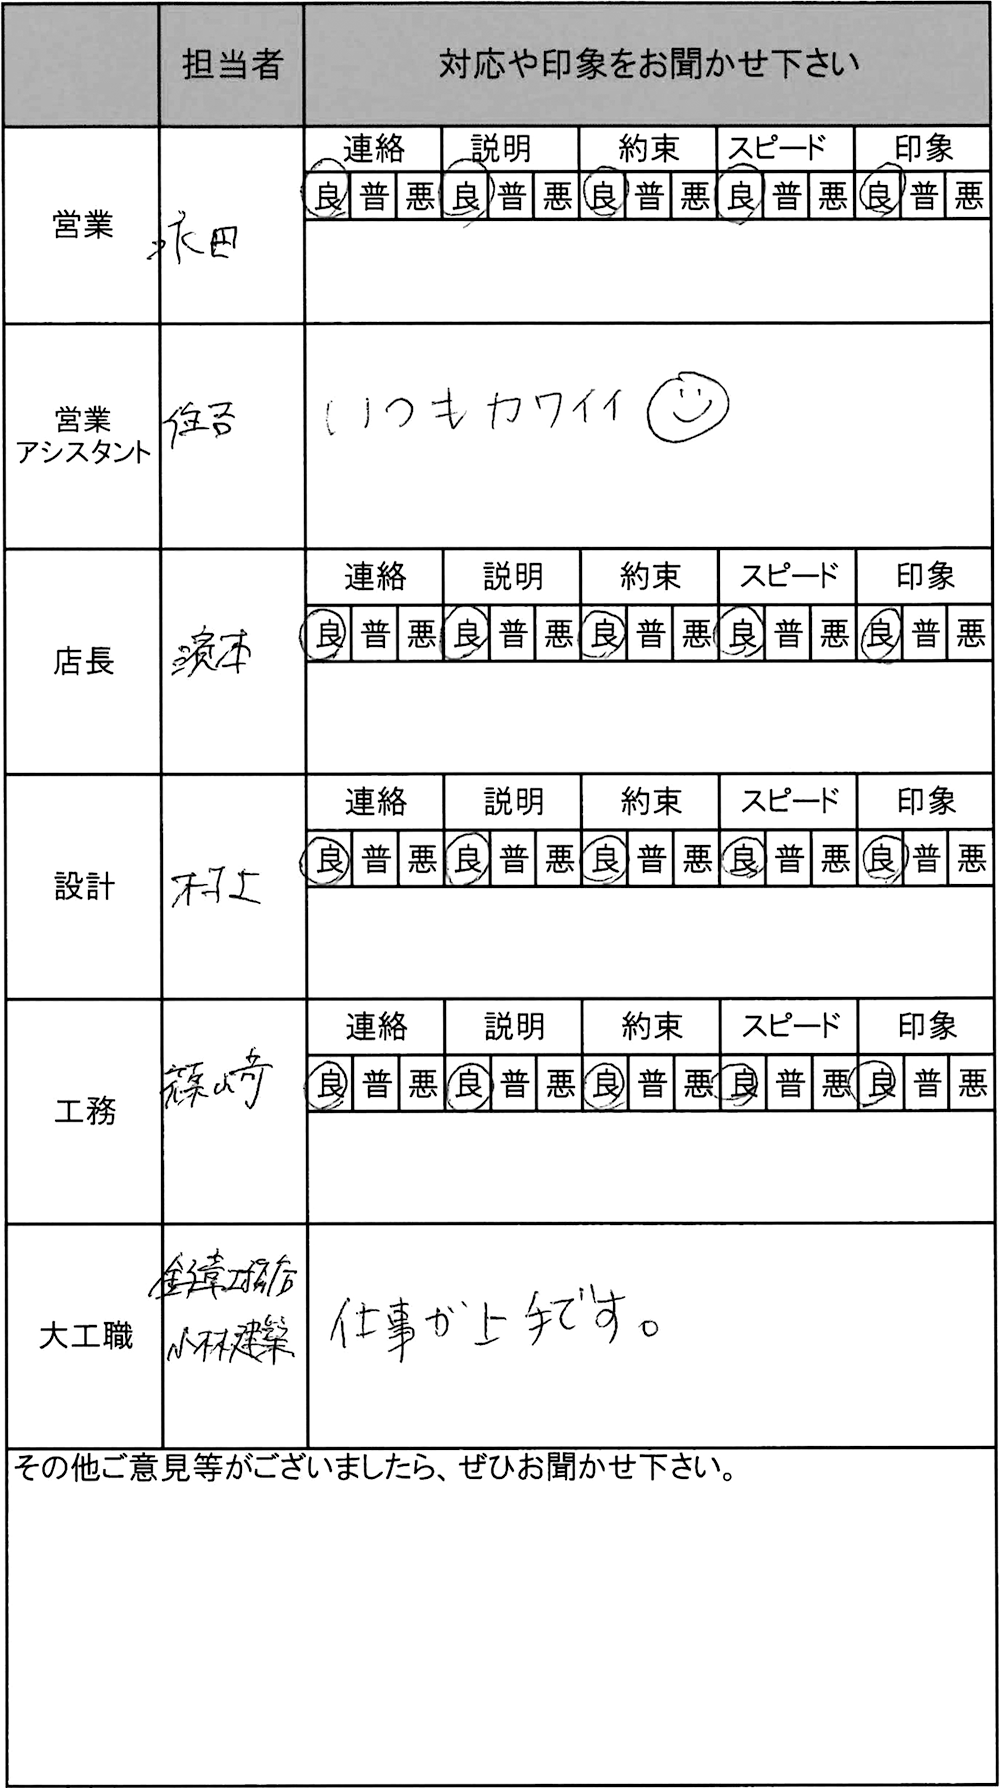 担当者 対応や印象をお聞かせ下さい
連絡 説明 約束 スピード 印象
良 普 悪 良 普 悪 良 普 悪 良 普 悪 良 普 悪
営業 永田
営業
アシスタント
住吉 いつもカワイイ
連絡 説明 約束 スピード 印象
良 普 悪 良 普 悪 良 普 悪 良 普 悪 良 普 悪
店長 濱本
連絡 説明 約束 スピード 印象
良 普 悪 良 普 悪 良 普 悪 良 普 悪 良 普 悪
設計 村上
連絡 説明 約束 スピード 印象
良 普 悪 良 普 悪 良 普 悪 良 普 悪 良 普 悪
工務 篠崎
大工職
小林建築
仕事が上手です。
その他ご意見等がございましたら、ぜひお聞かせ下さい。